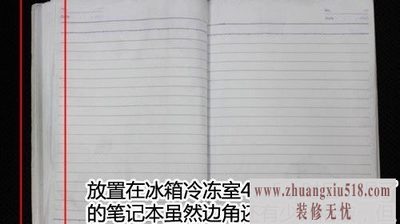 放置在冰箱冷冻室4
的笔记本虽然边角还
www.zhuangxiu518.com
装修无忧